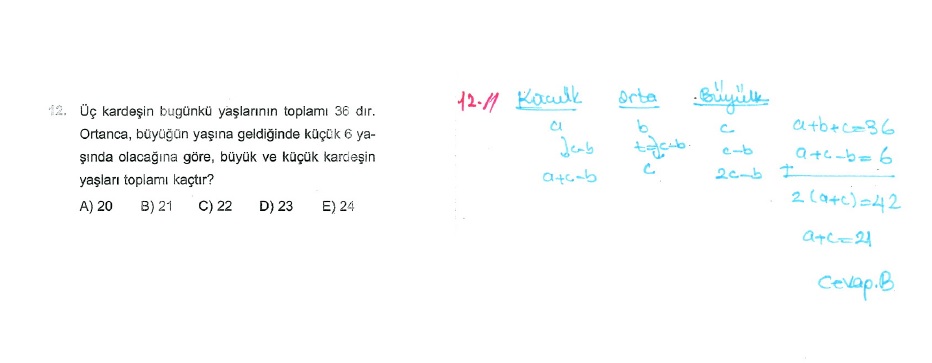 12. Üç kardeşin bugünkü yaşlarının toplamı 36 dır.
Ortanca, büyüğün yaşına geldiğinde küçük 6 ya-
şında olacağına göre, büyük ve küçük kardeşin
yaşları toplamı kaçtır?
A) 20 B) 21 C) 22 D) 23 E) 24
12-)) Küçük Orta Büyük
a b c
c-b c-b c-b
a+c-b c 2c-b
a+b+c=36
a+c-b=6
+
2(a+c)=42
a+c=21
Cevap.B